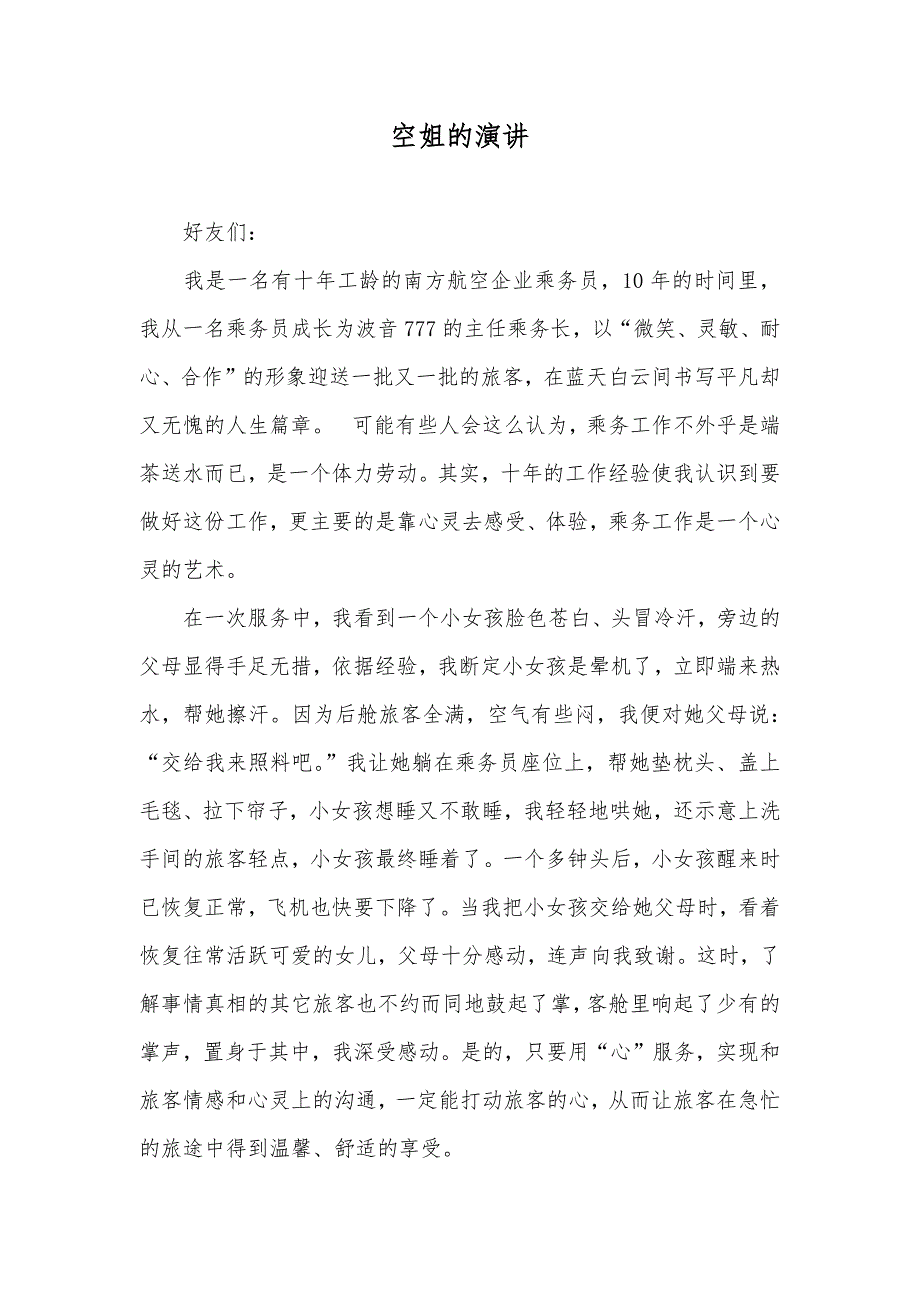 空姐的演讲
好友们：
我是一名有十年工龄的南方航空企业乘务员，10 年的时间里，
我从一名乘务员成长为波音 777 的主任乘务长，以“微笑、灵敏、耐
心、合作”的形象迎送一批又一批的旅客，在蓝天白云间书写平凡却
又无愧的人生篇章。　可能有些人会这么认为，乘务工作不外乎是端
茶送水而已，是一个体力劳动。其实，十年的工作经验使我认识到要
做好这份工作，更主要的是靠心灵去感受、体验，乘务工作是一个心
灵的艺术。
在一次服务中，我看到一个小女孩脸色苍白、头冒冷汗，旁边的
父母显得手足无措，依据经验，我断定小女孩是晕机了，立即端来热
水，帮她擦汗。因为后舱旅客全满，空气有些闷，我便对她父母说：
“交给我来照料吧。”我让她躺在乘务员座位上，帮她垫枕头、盖上
毛毯、拉下帘子，小女孩想睡又不敢睡，我轻轻地哄她，还示意上洗
手间的旅客轻点，小女孩最终睡着了。一个多钟头后，小女孩醒来时
已恢复正常，飞机也快要下降了。当我把小女孩交给她父母时，看着
恢复往常活跃可爱的女儿，父母十分感动，连声向我致谢。这时，了
解事情真相的其它旅客也不约而同地鼓起了掌，客舱里响起了少有的
掌声，置身于其中，我深受感动。是的，只要用“心”服务，实现和
旅客情感和心灵上的沟通，一定能打动旅客的心，从而让旅客在急忙
的旅途中得到温馨、舒适的享受。